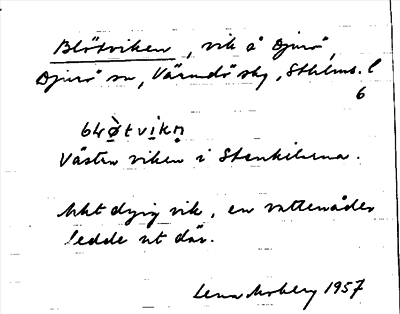 Blötviken, vik å Djurö,
Djurö sn, Värmdö skg, Sthlms. l
6
blø̀tvikn̥
Västra viken i
Mkt dyig vik, en vattenåder
ledde ut där.
Lena Moberg 1957